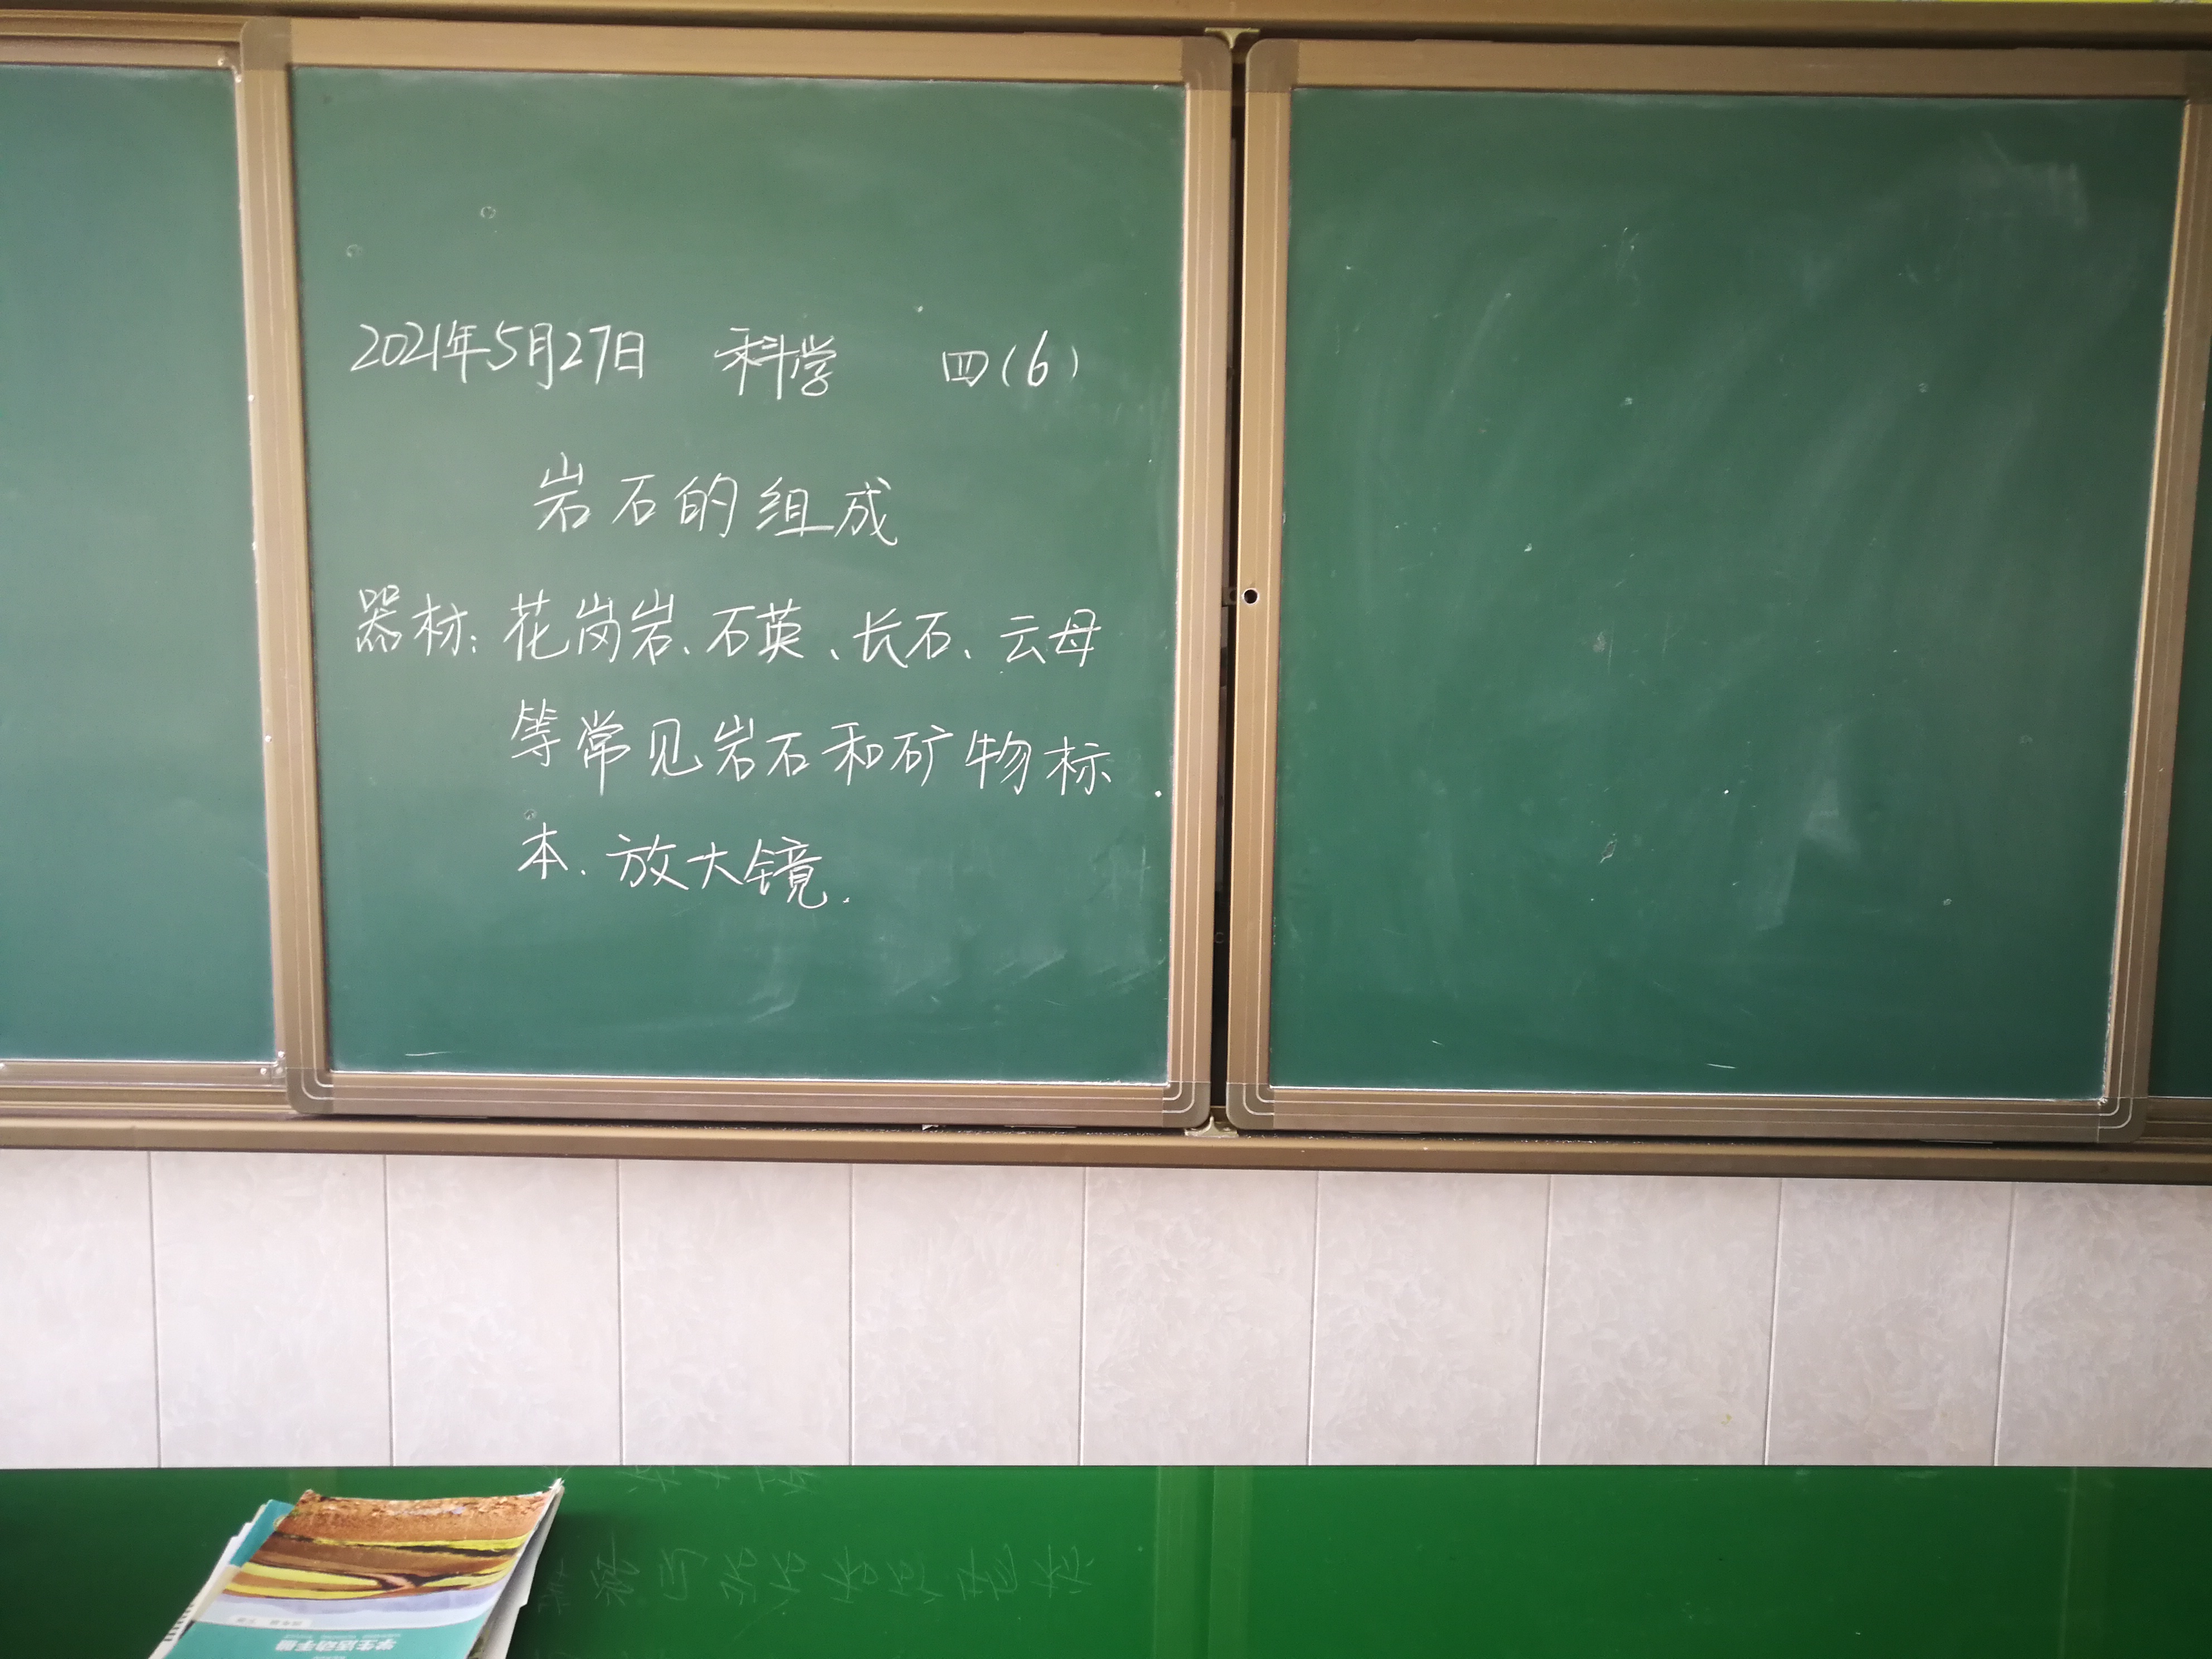 2021年5月27日 科学 四(6)
岩石的组成
器材:花岗岩、石英、长石、云母
等常见岩石和矿物标
本、放大镜.
学生活动手册